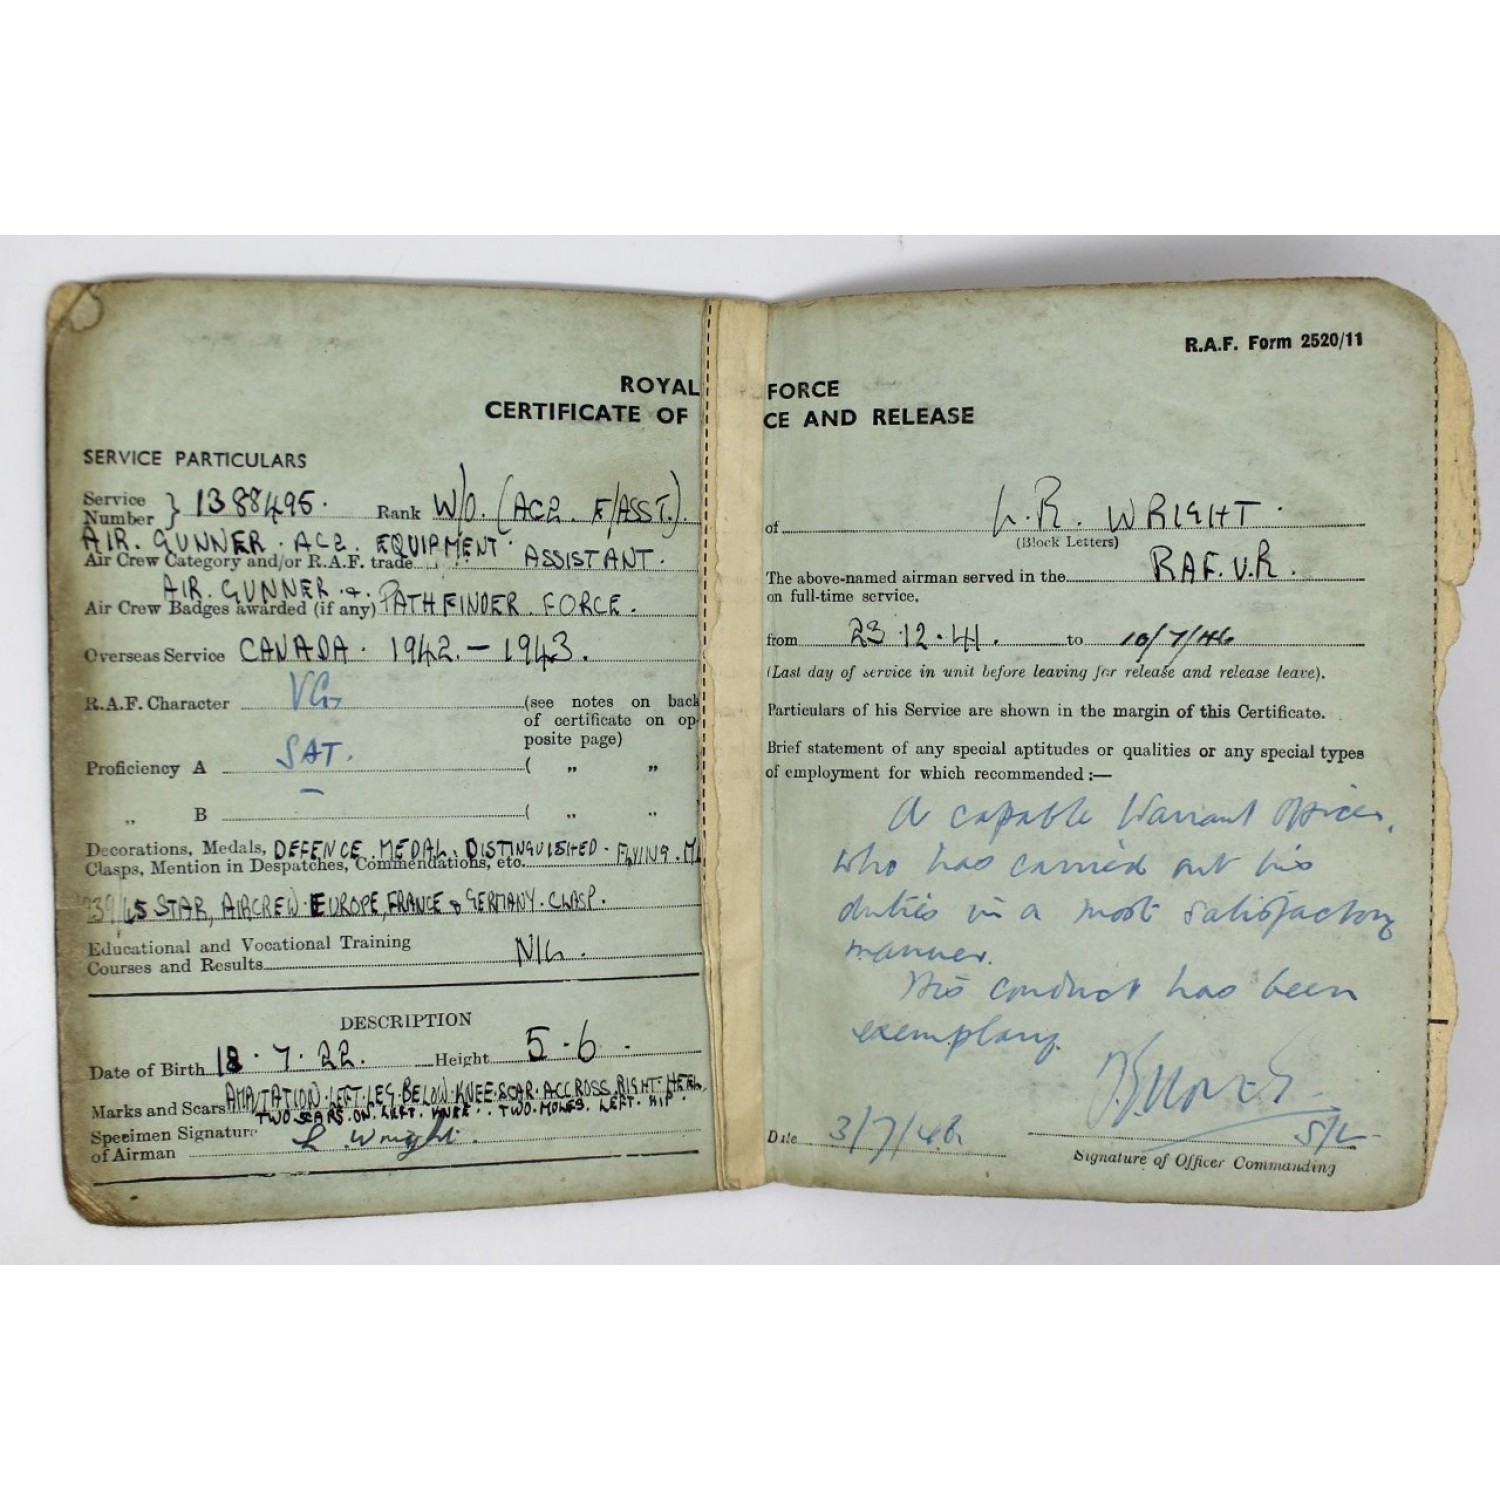 ROYAL
CERTIFICATE OF
SERVICE PARTICULARS
Service Number } 1388495. Rank W/O. (AC2. E/ASST.).
AIR. GUNNER. AC2. EQUIPMENT. ASSISTANT.
Air Crew Category and/or R.A.F. trade
AIR. GUNNER. &.
Air Crew Badges awarded (if any) PATHFINDER FORCE.
Overseas Service CANADA. 1942. – 1943.
R.A.F. Character VG (see notes on back
of certificate on op-
posite page)
Proficiency A SAT. ( „ „
„ B – ( „ „
Decorations, Medals, DEFENCE MEDAL. DISTINGUISHED. FLYING. M
Clasps, Mention in Despatches, Commendations, etc.
39/45 STAR, AIRCREW EUROPE, FRANCE & GERMANY. CLASP.
Educational and Vocational Training
Courses and Results NIL.
DESCRIPTION
Date of Birth 18.7.22. Height 5.6.
AMPUTATION. LEFT. LEG. BELOW. KNEE. SCAR. ACCROSS. RIGHT. HEEL.
Marks and Scars TWO SCARS. ON. LEFT. KNEE.. TWO. MOLES. LEFT. HIP.
Specimen Signature
of Airman L. Wright.
R.A.F. Form 2520/11
FORCE
CE AND RELEASE
of L. R. WRIGHT.
(Block Letters)
The above-named airman served in the RAF.V.R.
on full-time service,
from 23.12.41. to 10/7/46
(Last day of service in unit before leaving for release and release leave).
Particulars of his Service are shown in the margin of this Certificate.
Brief statement of any special aptitudes or qualities or any special types
of employment for which recommended :—
A capable Warrant Officer,
who has carried out his
duties in a most satisfactory
manner.
His conduct has been
exemplary.
Date 3/7/46. S/L
Signature of Officer Commanding